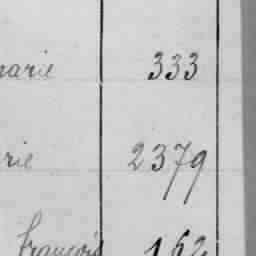 marie 333
rie 2379
françois 162